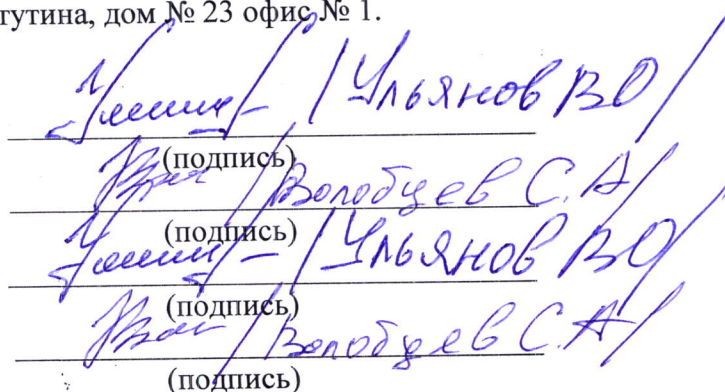 гутина, дом № 23 офис № 1.
/ Ульянов ВО /
(подпись)
/ Волобуев С.А /
(подпись)
/ Ульянов ВО /
(подпись)
/ Волобуев С.А /
(подпись)